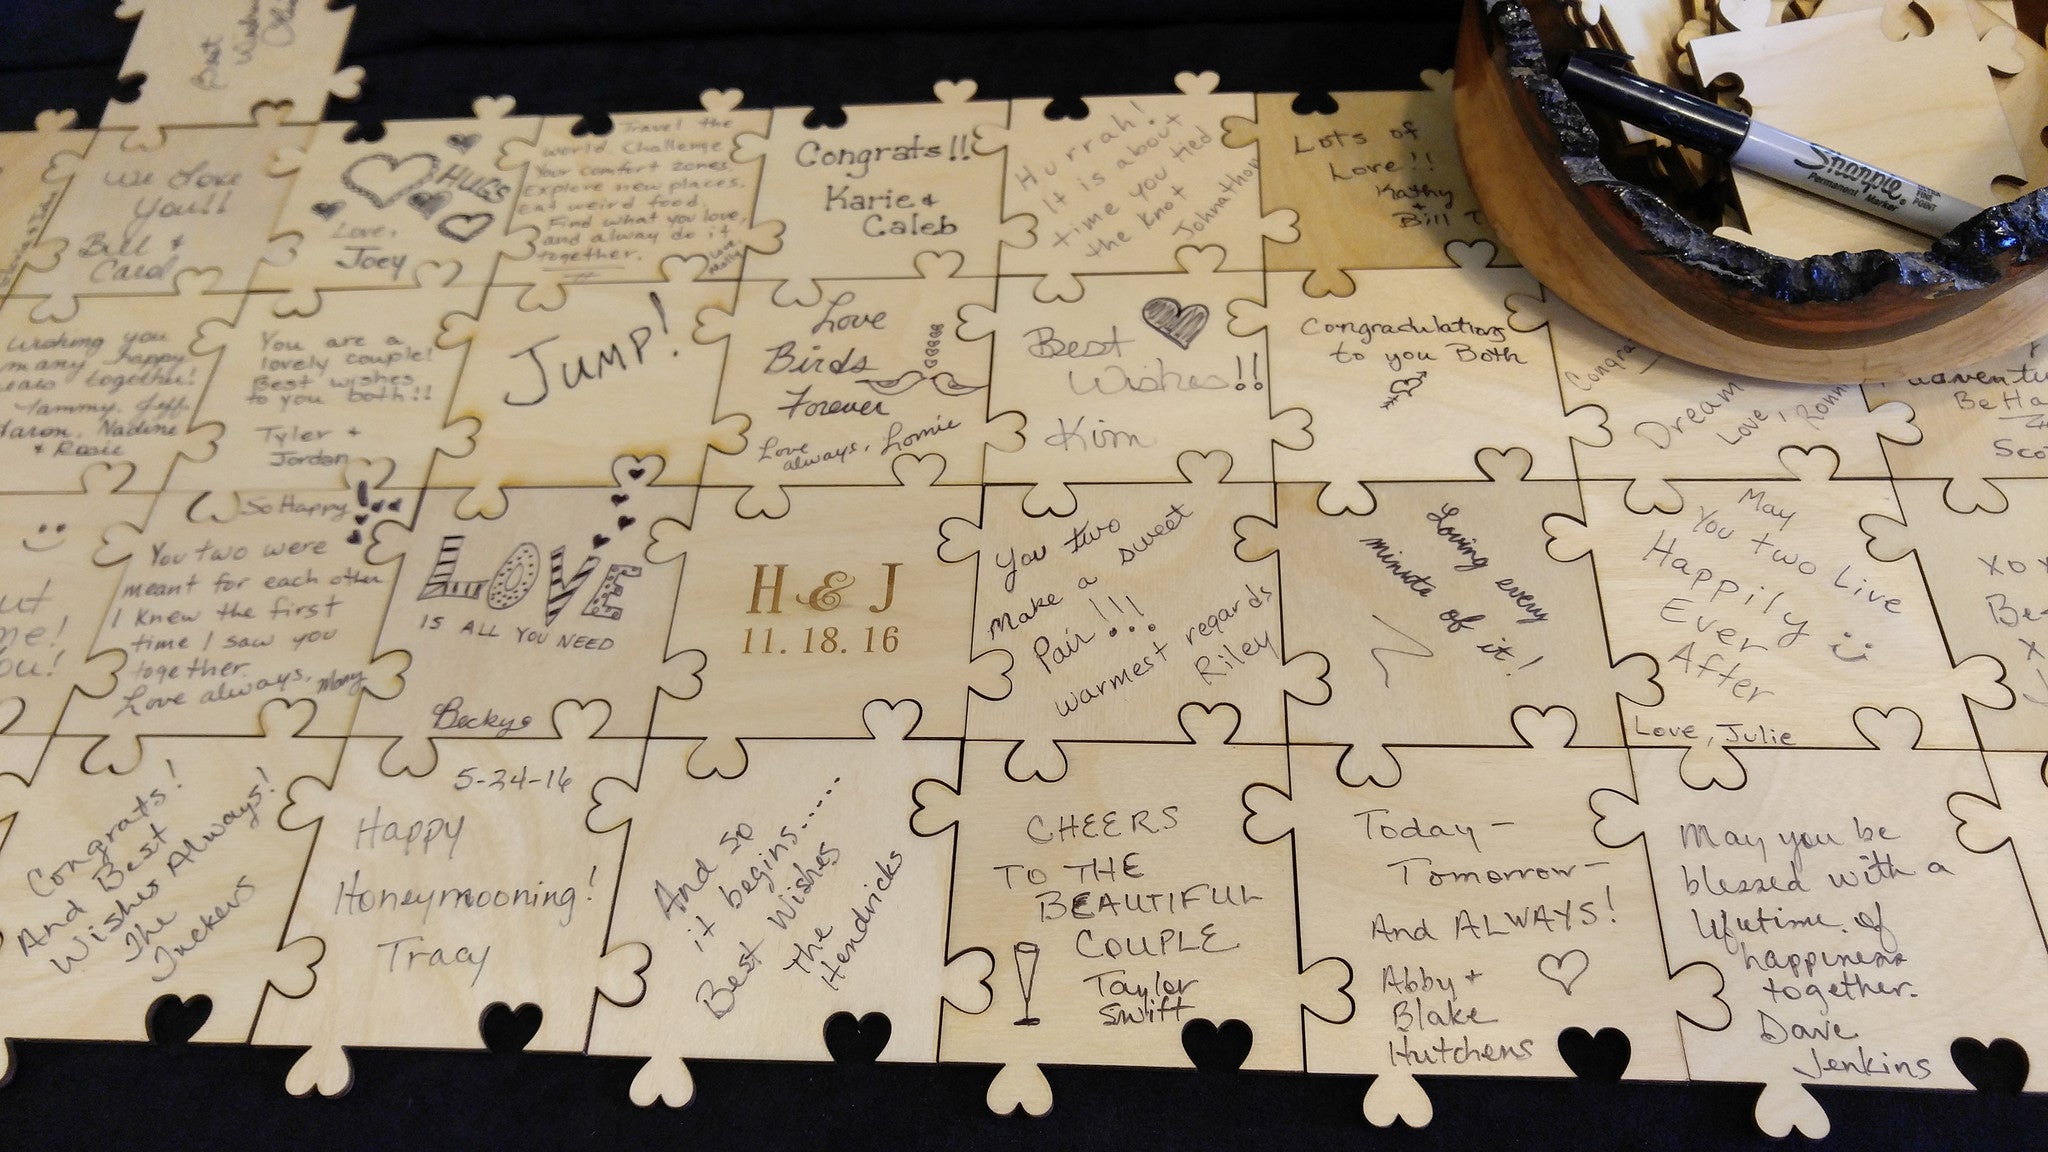 Best
Wishes
We Love
you!!
Bill &
Carol
HUGS
Love,
Joey
Travel the
world. Challenge
Your comfort zones.
Explore new places.
Eat weird food.
Find what you love,
and alway do it
together.
Love
Molly
Congrats!!
Karie &
Caleb
Hurrah!
It is about
time you tied
the knot
Johnathon
Lots of
Love!!
Kathy
+
Bill T
Sharpie
Permanent Marker
FINE
POINT
Wishing you
many happy
years together!
Tammy, Jeff
Aaron, Nadine
& Rosie
You are a
lovely couple!
Best wishes
to you both!!
Tyler +
Jordan
Jump!
Love
Birds
Forever
Love
always, Lornie
Best
Wishes!!
Kim
Congradulations
to you Both
Dream
Love, Ronn
adventu
Be Ha
Sco
ut
me!
ou!
So Happy!
You two were
meant for each other
I knew the first
time I saw you
together.
Love always, Mary
LOVE
IS ALL YOU NEED
Becky
H & J
11. 18. 16
You two
make a sweet
Pair!!!
warmest regards
Riley
Loving every
minute of it!
May
You two Live
Happily
Ever
After
Love, Julie
xo x
Be
x
J
Congrats!
And Best
Wishes Always!
The
Tuckers
5-24-16
Happy
Honeymooning!
Tracy
And so
it begins......
Best Wishes
The
Hendricks
CHEERS
TO THE
BEAUTIFUL
COUPLE
Taylor
Swift
Today-
Tomorrow-
And ALWAYS!
Abby +
Blake
Hutchens
May you be
blessed with a
lifetime of
happiness
together.
Dave
Jenkins